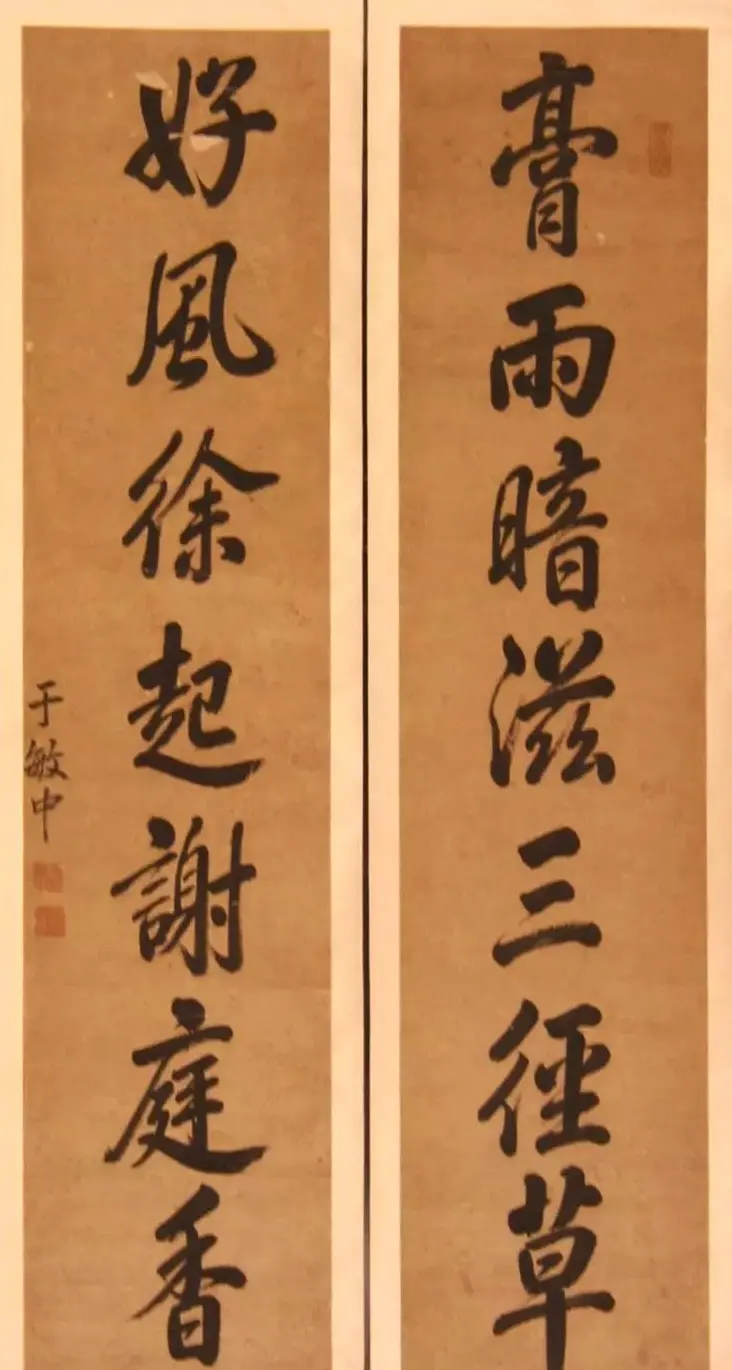 膏雨暗滋三徑草
好風徐起謝庭香
于敏中